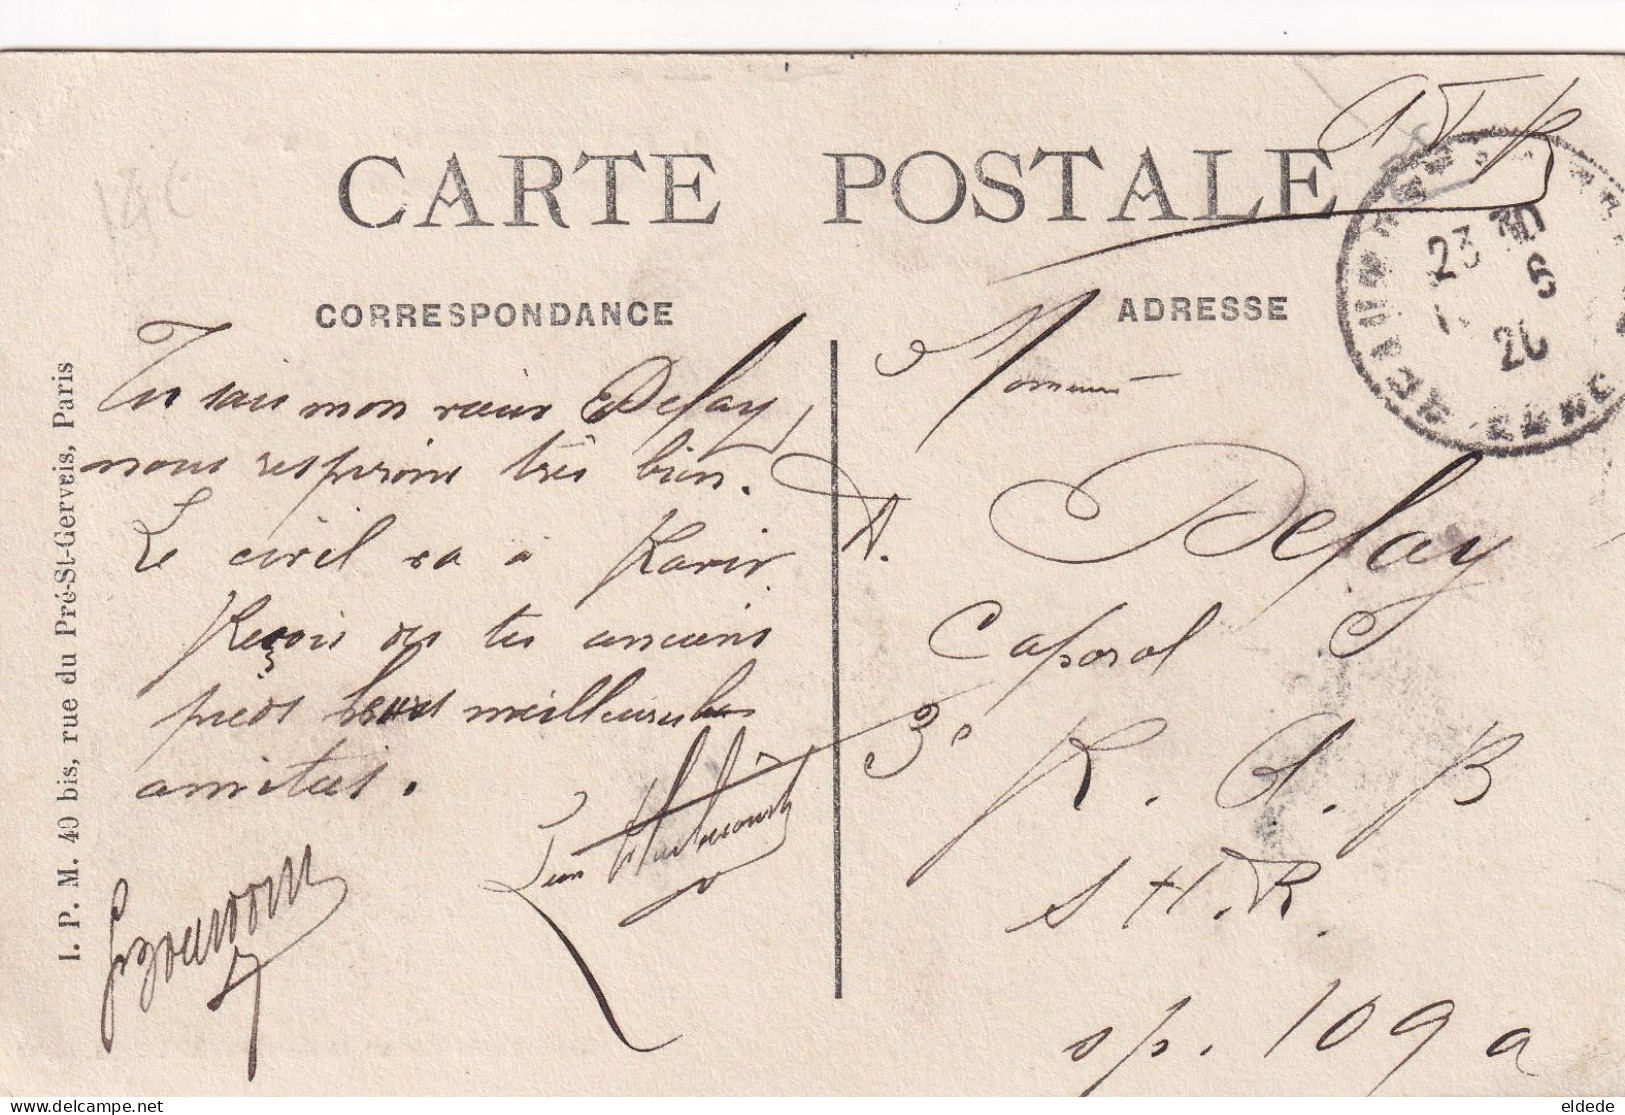 CARTE POSTALE
CORRESPONDANCE
ADRESSE
I. P. M. 40 bis, rue du Pré-St-Gervais, Paris
23 30
5
20
Tu sais mon vieux Defay,
nous respirons très bien.
Le civil va à ravir
Reçois de tes anciens
pieds leurs meilleures
amitiés.
Léon
A. Defay
Caporal
3e R. A. B
S. H. R.
sp. 109 a
eldede